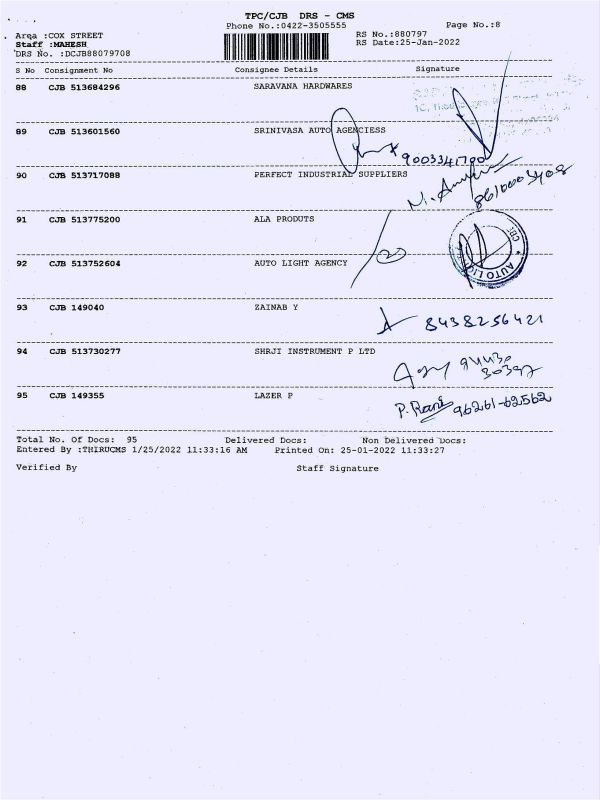 TPC/CJB DRS - CMS
Phone No.:0422-3505555 Page No.:8
Area :COX STREET RS No.:880797
Staff :MAHESH RS Date:25-Jan-2022
DRS No. :DCJB88079708
S No Consignment No Consignee Details Signature
88 CJB 513684296 SARAVANA HARDWARES
89 CJB 513601560 SRINIVASA AUTO AGENCIESS
9003341790
90 CJB 513717088 PERFECT INDUSTRIAL SUPPLIERS
8610003408
91 CJB 513775200 ALA PRODUTS
CBE
AUTO LIG
92 CJB 513752604 AUTO LIGHT AGENCY
93 CJB 149040 ZAINAB Y
8438256421
94 CJB 513730277 SHRJI INSTRUMENT P LTD
95 CJB 149355 LAZER P
P. Rani 96261-62562
Total No. Of Docs: 95 Delivered Docs: Non Delivered Docs:
Entered By :THIRUCMS 1/25/2022 11:33:16 AM Printed On: 25-01-2022 11:33:27
Verified By Staff Signature